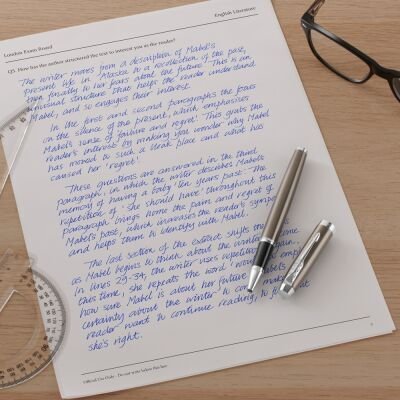 London Exam Board
English Literature
Q5. How has the author structured the text to interest you as the reader?
The writer moves from a description of Mabel's
present life in 'Alaska' to a recollection of the past,
then finally to her fears about the future. This is an
unusual structure that helps the reader understand
Mabel, and so engages their interest.
In the first and second paragraphs the focus
is on the silence of the present, which emphasises
Mabel's sense of 'failure and regret'. This grabs the
reader's interest by making you wonder why Mabel
has moved to such a bleak place and what has
caused her 'regret'.
These questions are answered in the third
paragraph, in which the writer describes Mabel's
memory of having a baby 'ten years past'. The
repetition of 'She should have' throughout this
paragraph brings home the pain and regret of
Mabel's past, which increases the reader's sympathy
and helps them to identify with Mabel.
The last section of the extract shifts
as Mabel begins to think about the winter
In lines 29-34, the writer uses repetition again,
this time, she repeats the word 'would' to
how sure Mabel is about her future
certainty about the winter to come makes
reader want to continue reading, to find out
she's right.